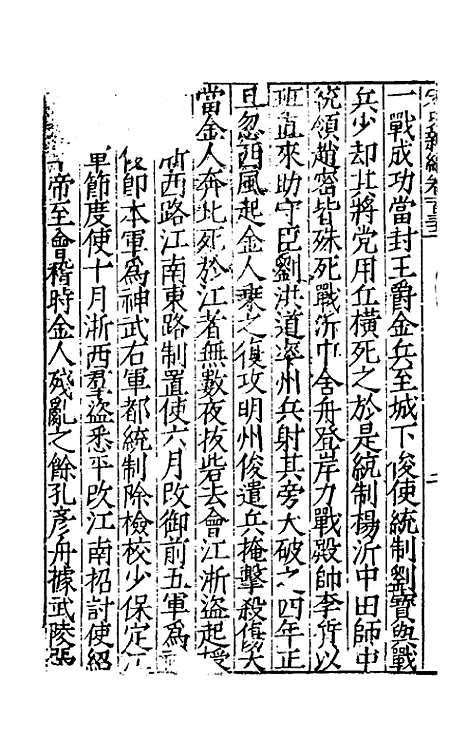 宋史新編卷百三十一
一戰成功當封王爵金兵至城下俊使統制劉寶與戰
兵少却其將党用丘橫死之於是統制楊沂中田師中
統領趙密皆殊死戰沂中舍舟登岸力戰殿帥李質以
班直來助守臣劉洪道率州兵射其旁大破之四年正
旦忽西風起金人乘之復攻明州俊遣兵掩擊殺傷大
當金人奔北死於江者無數夜拔砦去會江浙盜起授
浙西路江南東路制置使六月改御前五軍為
俊即本軍為神武右軍都統制除檢校少保定
軍節度使十月浙西羣盜悉平改江南招討使紹
帝至會稽時金人殘亂之餘孔彥舟據武陵張